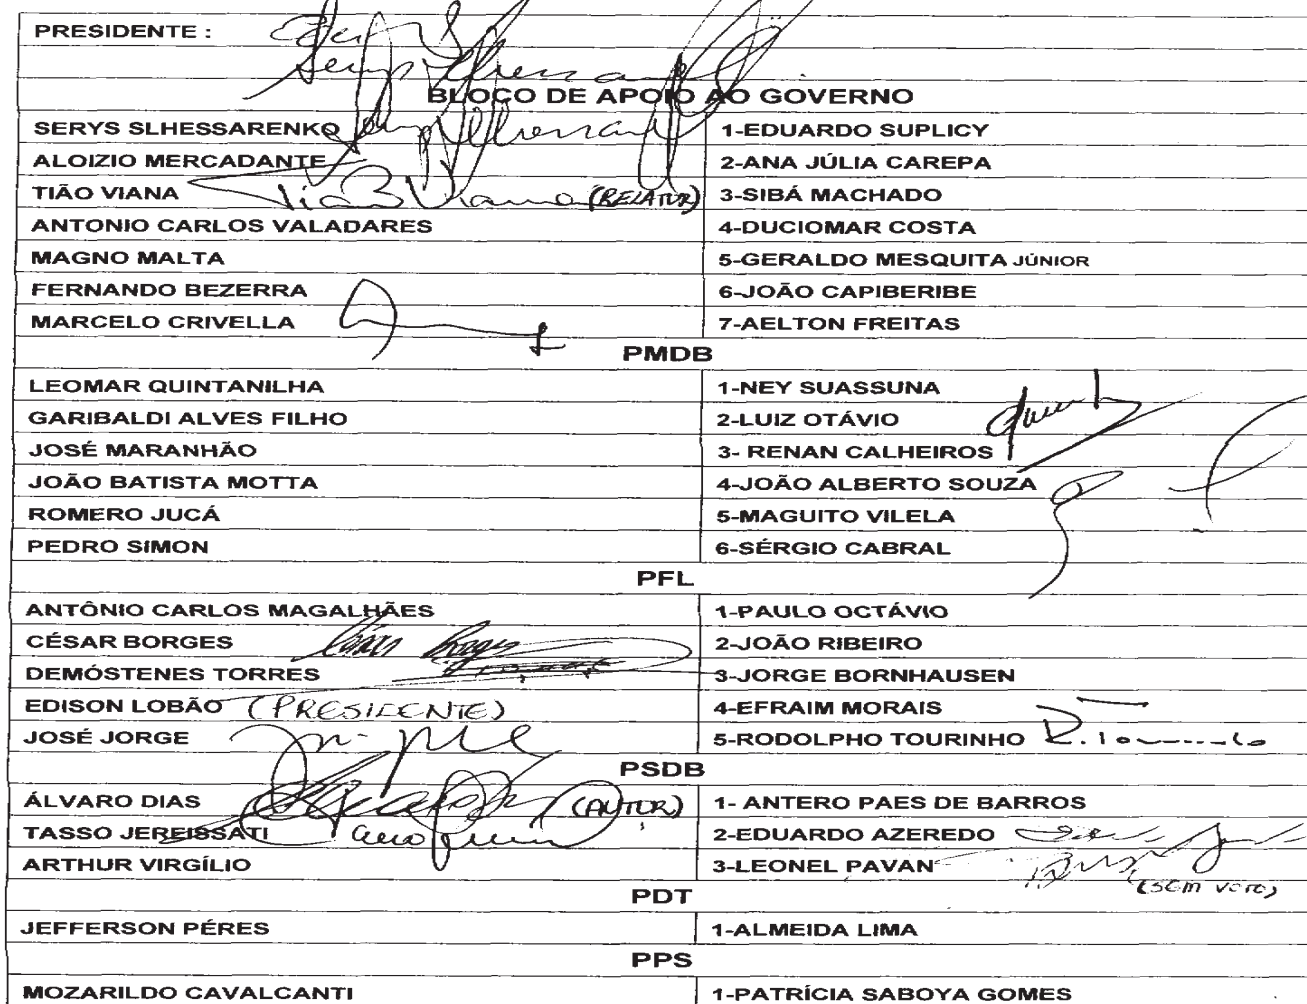 PRESIDENTE :
BLOCO DE APOIO AO GOVERNO
SERYS SLHESSARENKO 1-EDUARDO SUPLICY
ALOIZIO MERCADANTE 2-ANA JÚLIA CAREPA
TIÃO VIANA Tião Viana (RELATOR) 3-SIBÁ MACHADO
ANTONIO CARLOS VALADARES 4-DUCIOMAR COSTA
MAGNO MALTA 5-GERALDO MESQUITA JÚNIOR
FERNANDO BEZERRA 6-JOÃO CAPIBERIBE
MARCELO CRIVELLA 7-AELTON FREITAS
PMDB
LEOMAR QUINTANILHA 1-NEY SUASSUNA
GARIBALDI ALVES FILHO 2-LUIZ OTÁVIO
JOSÉ MARANHÃO 3- RENAN CALHEIROS
JOÃO BATISTA MOTTA 4-JOÃO ALBERTO SOUZA
ROMERO JUCÁ 5-MAGUITO VILELA
PEDRO SIMON 6-SÉRGIO CABRAL
PFL
ANTÔNIO CARLOS MAGALHÃES 1-PAULO OCTÁVIO
CÉSAR BORGES 2-JOÃO RIBEIRO
DEMÓSTENES TORRES 3-JORGE BORNHAUSEN
EDISON LOBÃO (PRESIDENTE) 4-EFRAIM MORAIS
JOSÉ JORGE 5-RODOLPHO TOURINHO
PSDB
ÁLVARO DIAS (AUTOR) 1- ANTERO PAES DE BARROS
TASSO JEREISSATI 2-EDUARDO AZEREDO
ARTHUR VIRGÍLIO 3-LEONEL PAVAN (SEM VOTO)
PDT
JEFFERSON PÉRES 1-ALMEIDA LIMA
PPS
MOZARILDO CAVALCANTI 1-PATRÍCIA SABOYA GOMES